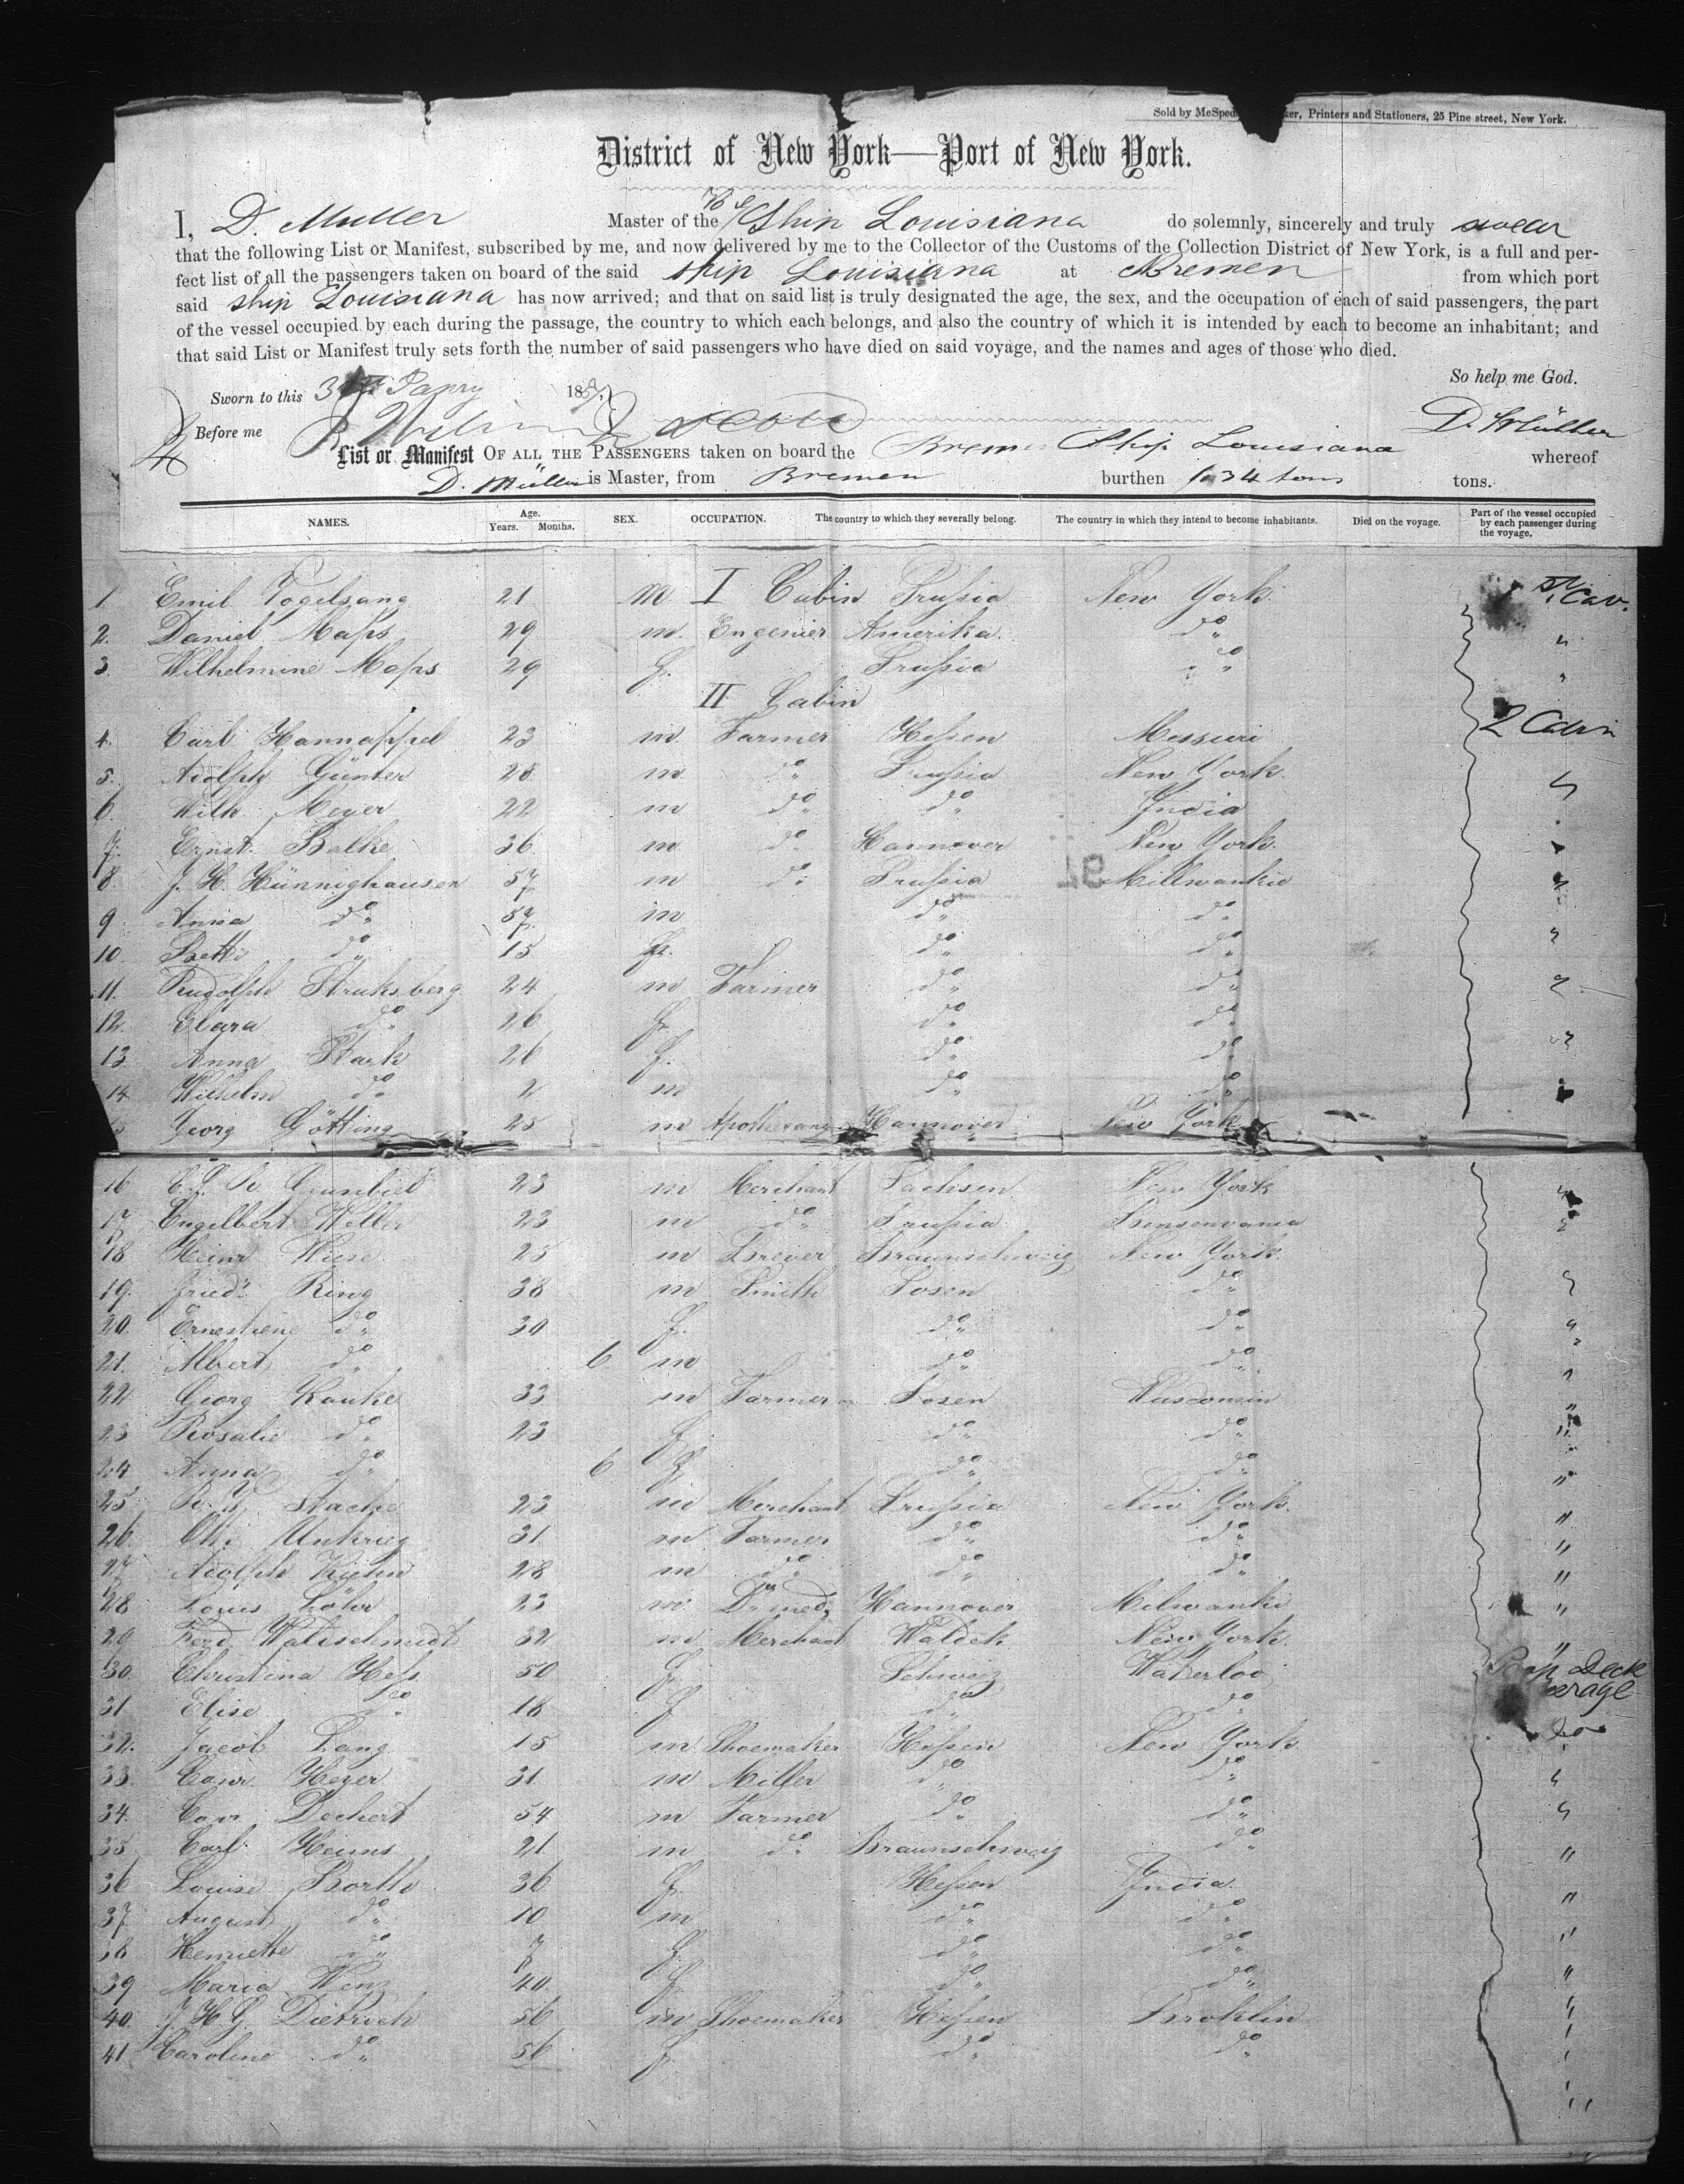 Sold by McSped ker, Printers and Stationers, 25 Pine street, New York.
District of New York—Port of New York.
I, D. Muller Master of the Ship Louisiana do solemnly, sincerely and truly swear
that the following List or Manifest, subscribed by me, and now delivered by me to the Collector of the Customs of the Collection District of New York, is a full and per-
fect list of all the passengers taken on board of the said ship Louisiana at Bremen from which port
said ship Louisiana has now arrived; and that on said list is truly designated the age, the sex, and the occupation of each of said passengers, the part
of the vessel occupied by each during the passage, the country to which each belongs, and also the country of which it is intended by each to become an inhabitant; and
that said List or Manifest truly sets forth the number of said passengers who have died on said voyage, and the names and ages of those who died.
So help me God.
Sworn to this 185
Before me D. Müller
List or Manifest OF ALL THE PASSENGERS taken on board the Brem. Ship Louisiana whereof
D. Müller is Master, from Bremen burthen tons tons.
NAMES. Age. Years. Months. SEX. OCCUPATION. The country to which they severally belong. The country in which they intend to become inhabitants. Died on the voyage. Part of the vessel occupied by each passenger during the voyage.
1. Emil Vogelsang 21 m. I Cabin Prußia New York Cab.
2. Daniel Maßs 29 m. Engenier Amerika. do "
3. Wilhelmine Maßs 29 f. Prußia do "
II Cabin
4. Carl Hannappel 23 m. Farmer Heßen Messuri 2 Cabin
5. Adolph Günter 28 m do Prußia New York "
6. Wilh. Meyer 22 m do do India
7. Ernst Balke 36 m do Hannover New York.
8. J. H. Hünnighausen 57 m do Prußia Millwaukie "
9. Anna do 57 m do do
10. Betti do 15 f. do do "
11. Rudolph Struksberg 24 m Farmer do do "
12. Clara do 26 f. do do
13. Anna Stark 26 f. do do "
14. Wilhelm do 2 m do do
Georg Götting 25 m Apothecary Hannover New York
16 23 m Merchant Sachsen New York "
17 Engelbert Weller 23 m do Prußia Pensenvania "
18 Heinr Wiese 25 m Breuer Braunschweig New York
19. Friedr. Ring 38 m Smith Posen do "
20. Ernestiene do 30 f. do do "
21. Albert do 6 m do do
22 Georg Kauke 33 m Farmer Posen Wasconsin "
23 Rosalie do 23 f do do "
24 Anna do 6 f do do "
25 Stache 23 m Merchant Prußia New York. "
26. 31 m Farmer do do "
27 Adolph Kuhn 28 m do do do "
28 Louis Löhr 23 m. Dr med. Hannover Milwauki "
29 Ferd. Waldschmidt 32 m Merchant Waldek New York. "
30. Christina Heß 50 f. Schweiz Waterloo Deck
31 Elise do 18 f do do erage
32. Jacob Lang 15 m Shoemaker Heßen New York do
33. Conr. Heyer 31 m Miller do do "
34. Conr. Dechert 54 m Farmer do do "
35 Carl Heims 21 m do Braunschweig do "
36 Louise Borth 36 f. Heßen India "
37 August do 10 m do do "
38 Henriette do 7 f. do do "
39 Maria Wenz 40 f. do do "
40. J. H. G. Dietrich 56 m Shoemaker Heßen Broklin "
41 Caroline do 56 f. do do "